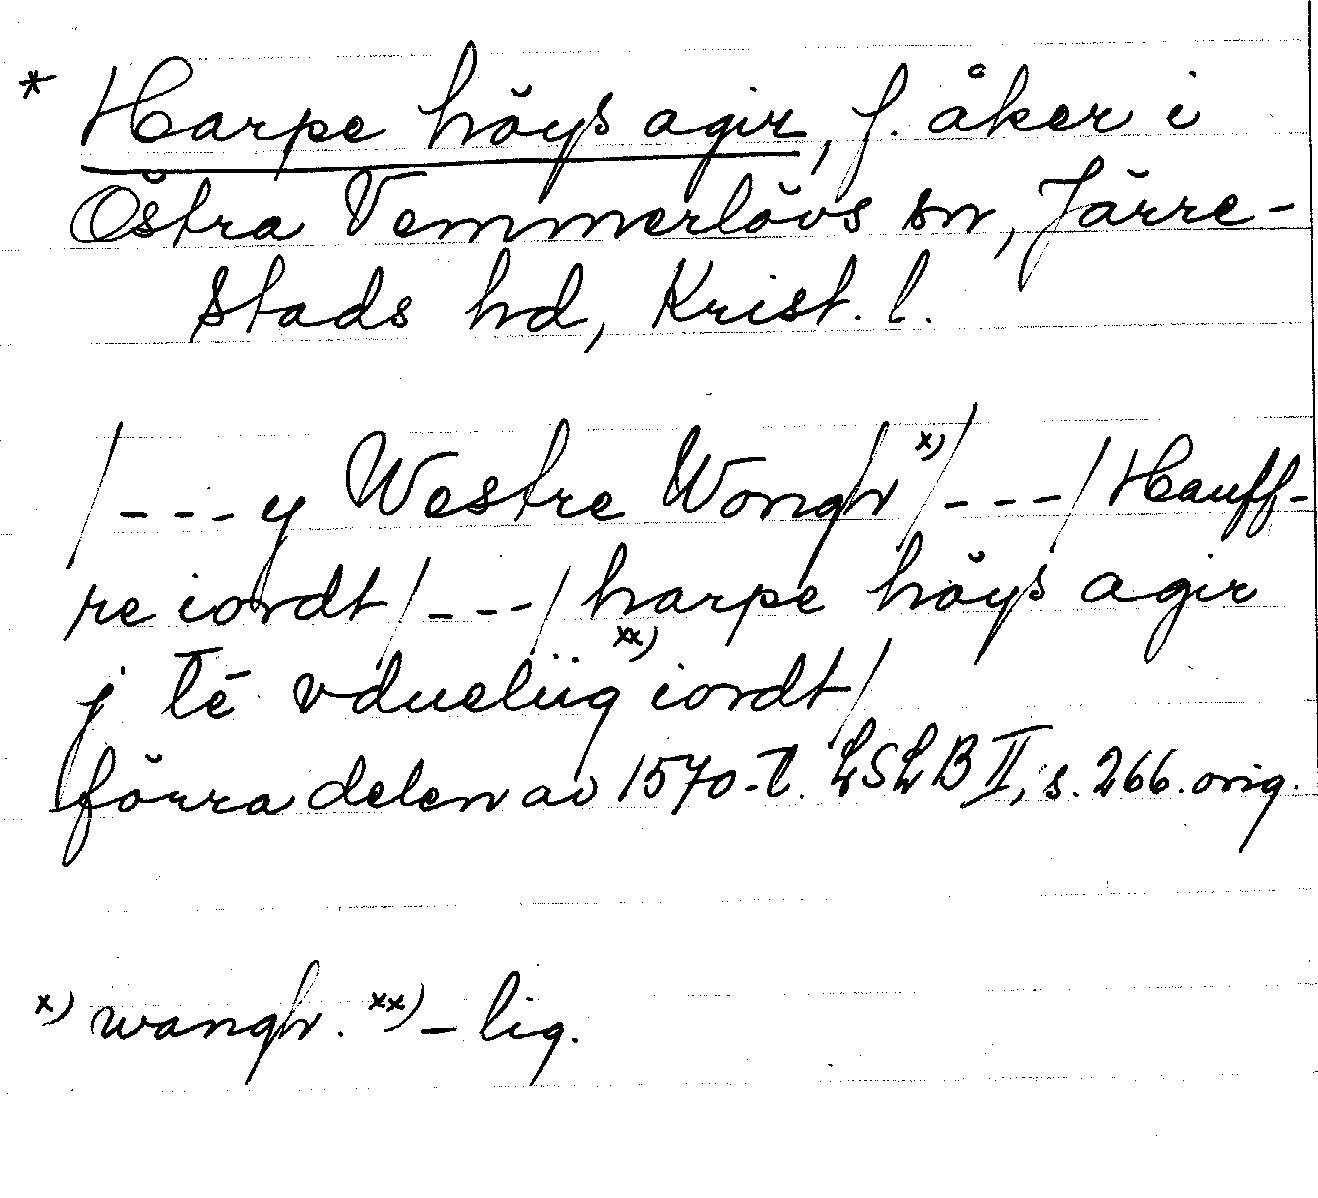 * Harpe höys agir, f. åker i
Östra Vemmerlövs sn, Järre-
stads hd, Krist. l.
/---y Westre Wongh x)/---/Hauff-
re iordt/---/harpe höys agir
j tē vduelüg xx) iordt/
förra delen av 1570-t. LSLB II, s. 266. orig.
x) wangh. xx) - lig.